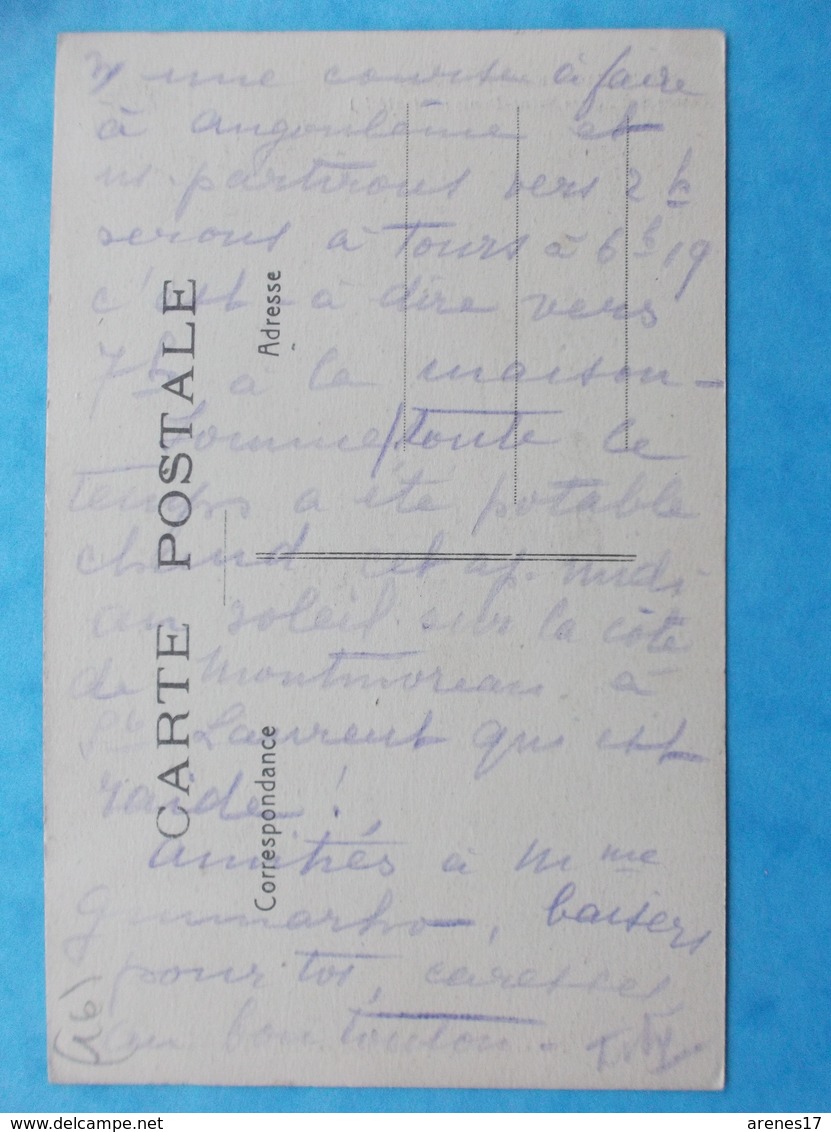 une course à faire
à angoulême et
ns. partirons vers 2 h
serons à Tours à 6 h 19
c'est-à dire vers
7 h à la maison -
toute le
temps a été potable
chaud cet ap. midi
au soleil sur la côte
de Montmoreau à
St Laurent qui est
raide !
amitiés à Mme
baisers
pour toi, caresses
au bon toutou -
(16)
CARTE POSTALE
Correspondance
Adresse
arenes17